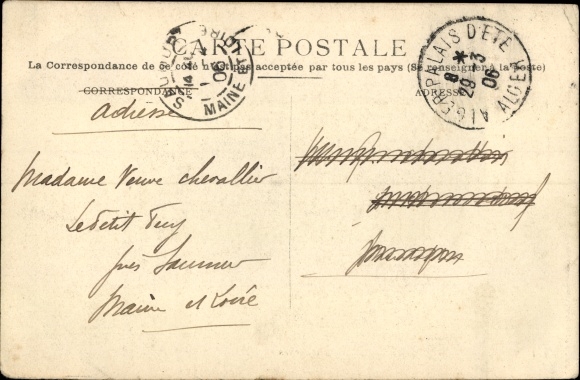 CARTE POSTALE
La Correspondance de ce côté n'est pas acceptée par tous les pays (Se renseigner à la Poste)
CORRESPONDANCE
ADRESSE
SAUMUR
MAINE-ET-LOIRE
ALGER PALAIS D'ÉTÉ
ALGER
8 *
29 3
06
adresse
Madame Veuve Chevallier
Le Petit Puy
près Saumur
Maine et Loire